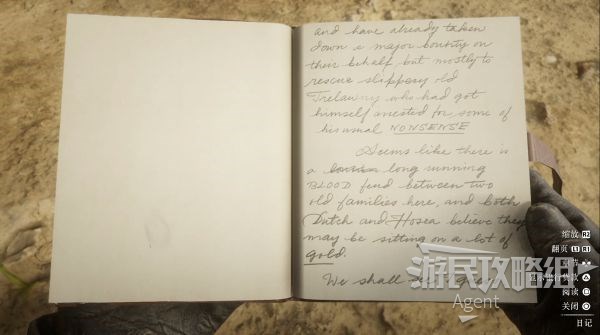 and have already taken
down a major bounty on
their behalf but mostly to
rescue slippery old
Trelawny who had got
himself arrested for some of
his usual NONSENSE
Seems like there is
a long running
BLOOD feud between two
old families here, and both
Dutch and Hosea believe they
may be sitting on a lot of
gold.
We shall
游民攻略组
Agent
缩放 R2
翻页 L1 R1
阅读
关闭
日记